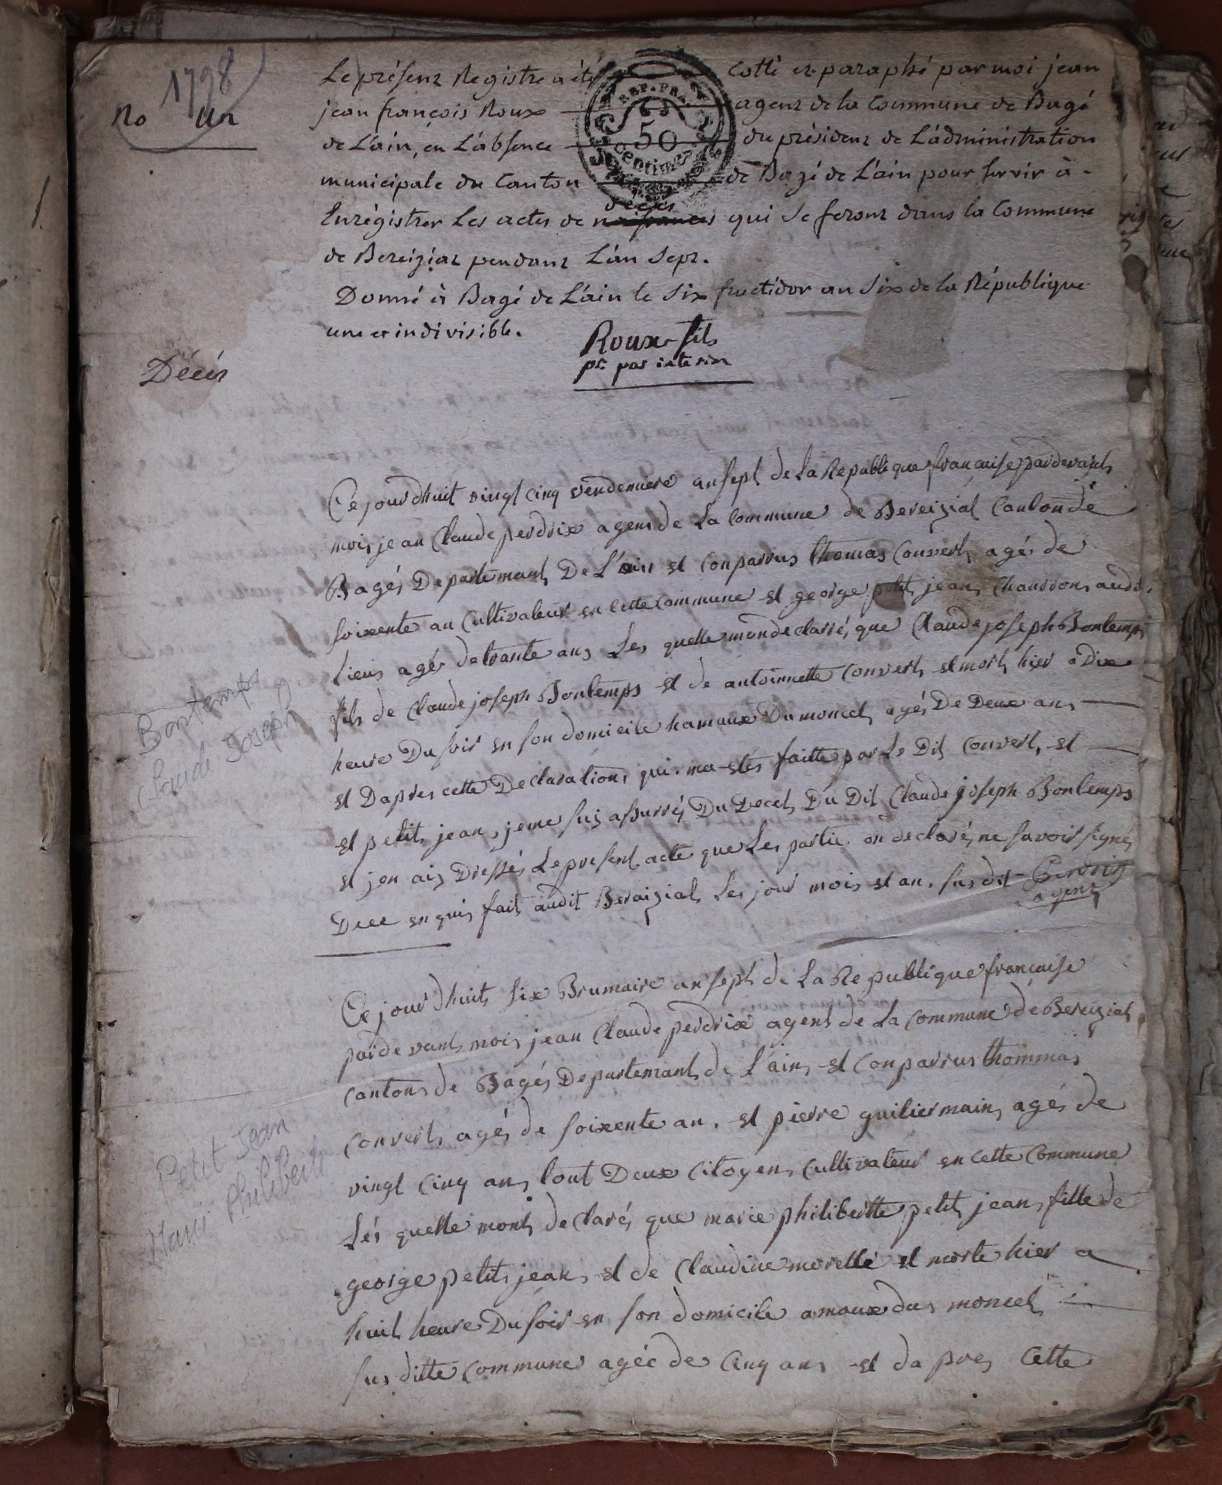 1798
No Un
Le présent Registre a été cotté et paraphé par moi jean
jean françois Roux agent de la Commune de Bagé
de L'ain, en L'absence du président de L'administration
municipale du Canton de Bagé de L'ain pour servir à
REP. FRA.
50
centimes
décès
Enrégistrer Les actes de naissances qui se feront dans la Commune
de Bereiziat pendant L'an sept.
Donné à Bagé de L'ain le six fructidor an six de la République
une et indivisible.
Roux fils
pt par interim
Décès
Ce jourdhuit vingt cinq vendemiere an sept de La Republique francaise pardevant
mois jean Claude perdrix agent de La Commune de Bereizial Canton de
Bagés Departemant De L'ain et Conparrus thomas Convert agés de
soixente an Cultivateur en Cette Commune et george petit jean Chanrdon audit
Lieus agés de trante ans Les quelle monde clarés que Claude joseph Bontemps
fils de Claude joseph Bontemps et de antoinnette Convert et mort hier a Dix
heure Du soir en son domicile hamaux Du moncel agés De Deux ans
et Dapres cette Declaration qui ma etés faitte par Le Dit Convert et
et petit jean jeme suis assurrés Du Decet Du Dit Claude joseph Bontemps
et jen ais Dressés Le present acte que Les partie on declarés ne savoir signé
Dece en quis fait audit Beraizial Les jour mois et an sus dit Perdrix
agent
Bontemps
Claude Joseph
Ce jour dhuit six Brumaire an sept de La Republique francaise
parde vant mois jean Claude perdrix agent de La Commune de Bereizial
cantons de Bagés Departemant de L'ain et Conparrus thommas
Convert agés de soixente an. et pierre guiliermain agés de
vingt Cinq ans tout Deux Citoyen Cultivateur en Cette Commune
Lés quelle mont de Clarés que marie philibertte petit jean fille de
george petit jean et de Claudine morelle et morte hier a
huit heure Du soir en son domicile amaux du moncel
sus ditte Commune agée de Cinq ans et da pres Cette
Petit Jean
Marie Philiberte